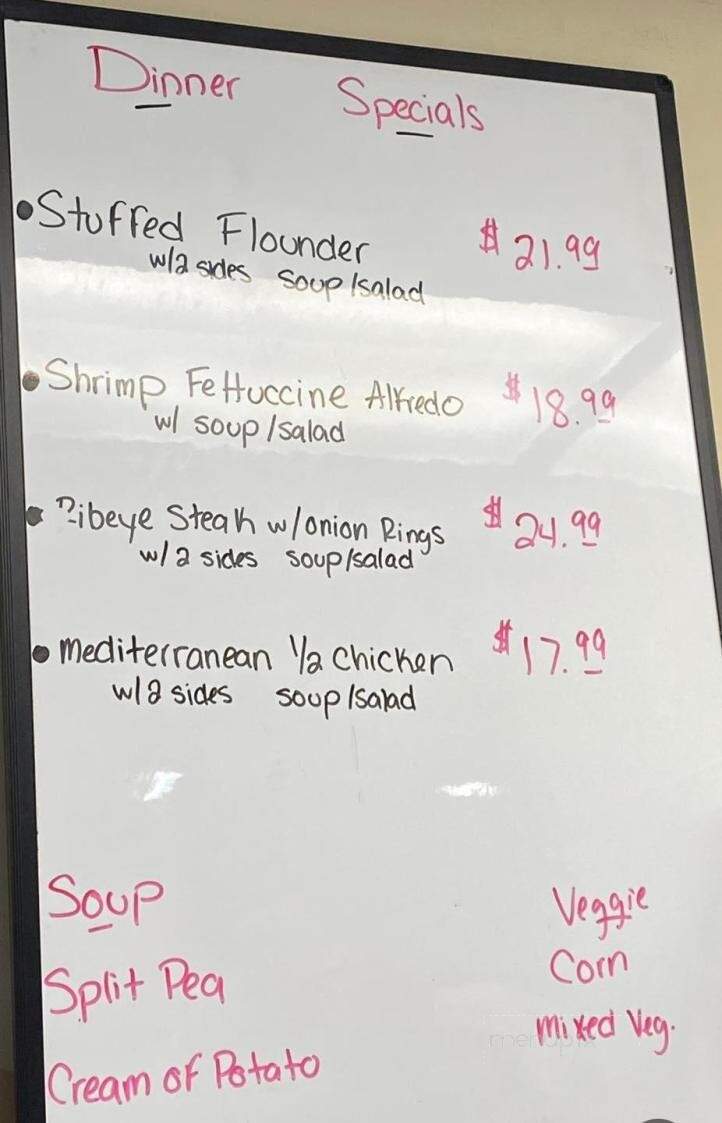 Dinner Specials
• Stuffed Flounder $21.99
w/2 sides soup/salad
• Shrimp Fettuccine Alfredo $18.99
w/ soup/salad
• Ribeye Steak w/onion Rings $24.99
w/2 sides soup/salad
• mediterranean 1/2 chicken $17.99
w/2 sides soup/salad
Soup
Split Pea
Cream of Potato
Veggie
Corn
mixed Veg.